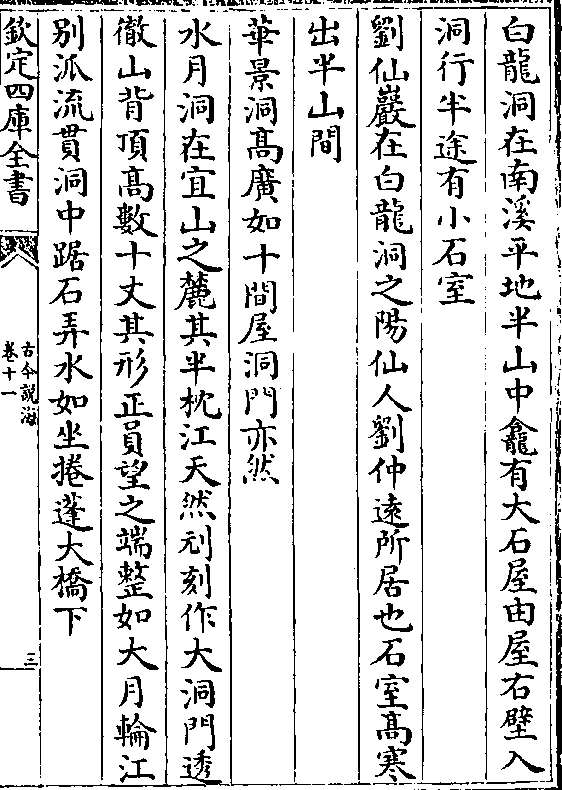 白龍洞在南溪平地半山中龕有大石屋由屋右壁入
洞行半途有小石室
劉仙巖在白龍洞之陽仙人劉仲遠所居也石室髙寒
出半山間
華景洞髙廣如十間屋洞門亦然
水月洞在宜山之麓其半枕江天然刓刻作大洞門透
徹山背頂髙數十丈其形正員望之端整如大月輪江
别派流貫洞中踞石弄水如坐捲蓬大橋下
欽定四庫全書
古今説海
卷十一
三